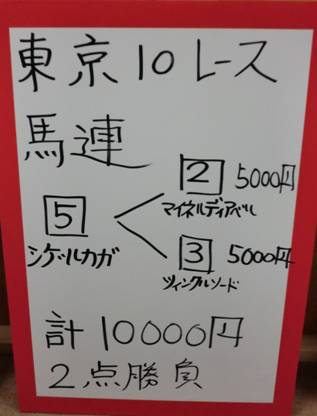 東京10レース
馬連
2 5000円
マイネルディアベル
5
シゲルカガ
3 5000円
ツィンクルソード
計 10000円
2点勝負